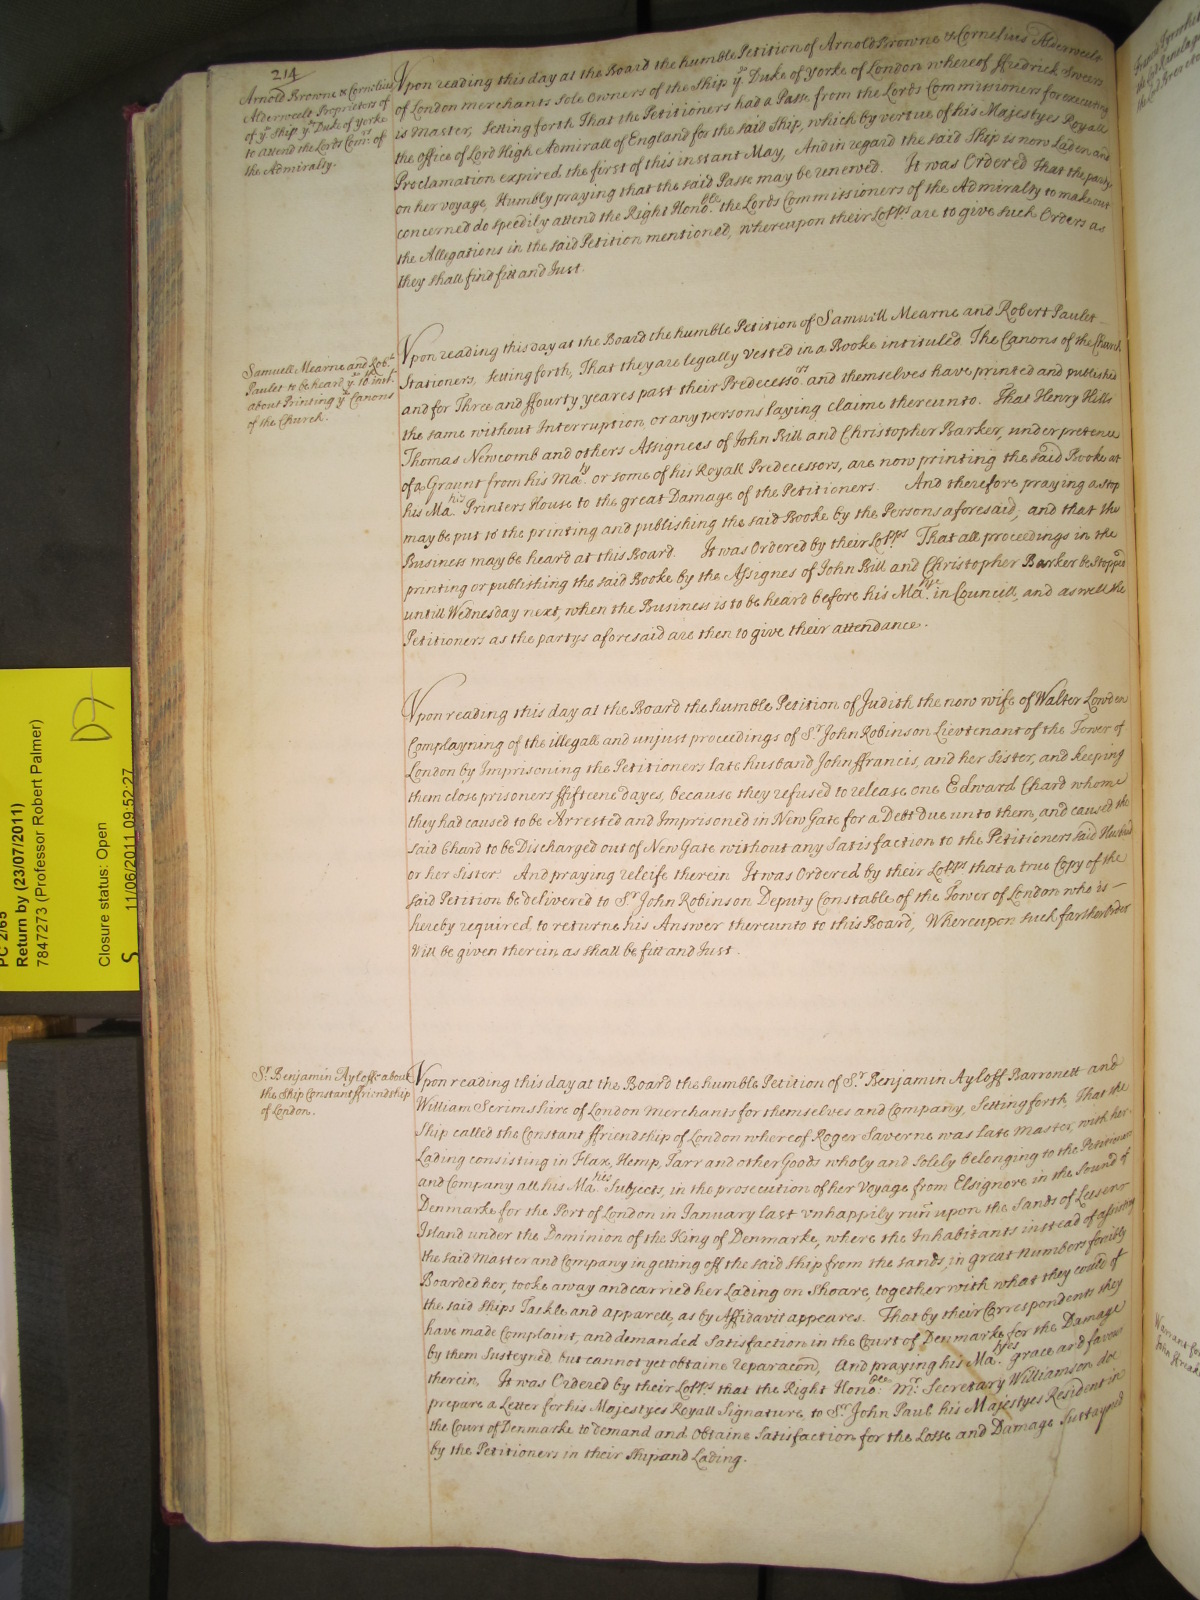 214
Arnold Browne & Cornelius
Alderweelt Proprietors of
of yͤ Ship yͤ Duke of yorke
to attend the Lords Comʳˢ of
the Admiralty.
Vpon reading this day at the Board the humble Petition of Arnold Browne & Cornelius Alderweelt
of London merchants sole Owners of the Ship yͤ Duke of Yorke of London whereof ffredrick Sweers
is Master, setting forth That the Petitioners had a Passe from the Lords Commissioners for executing
the office of Lord High Admirall of England for the said Ship, which by vertue of his Majestyes Royall
Proclamation expired the first of this instant May, And in regard the said Ship is now Laden and
on her voyage, Humbly praying that the said Passe may be renewed. It was Ordered That the partys
concerned do speedily attend the Right Honoᵇˡᵉ the Lords Commissioners of the Admiralty to make out
the Allegations in the said Petition mentioned, whereupon their Loᵖᵖˢ are to give such Orders as
they shall find fitt and Just.
Samuell Mearne and Robᵗ
Paulet to be heard yͤ 18 inst.
about Printing yͤ Canons
of the Church.
Vpon reading this day at the Board the humble Petition of Samuell Mearne and Robert Paulet
Stationers, setting forth, That they are legally vested in a Booke intituled The Canons of the Church
and for Three and ffourty yeares past their Predecessoʳˢ and themselves have printed and published
the same without Interruption, or any persons laying claime thereunto. That Henry Hills
Thomas Newcomb and others Assignees of John Bill and Christopher Barker, under pretence
of a Graunt from his Maᵗʸ or some of his Royall Predecessors, are now printing the said Booke at
his Maᵗⁱᵉˢ Printers House to the great Damage of the Petitioners. And therefore praying a stop
may be put to the printing and publishing the said Booke by the Persons aforesaid, and that the
Business may be heard at this Board. It was Ordered by their Loᵖᵖˢ That all proceedings in the
printing or publishing the said Booke by the Assignes of John Bill and Christopher Barker be stopped
untill Wednesday next, when the Business is to be heard before his Maᵗʸ in Councill, and as well the
Petitioners as the partys aforesaid are then to give their attendance.
Vpon reading this day at the Board the humble Petition of Judith the now wife of Walter Lowden
Complayning of the illegall and unjust proceedings of Sʳ John Robinson Lievtenant of the Tower of
London by Imprisoning the Petitioners late husband John ffrancis, and her Sister, and keeping
them close prisoners ffifteene dayes, because they refused to release one Edward Chard whome
they had caused to be Arrested and Imprisoned in New Gate for a Debt due unto them, and caused the
said Chard to be Discharged out of New Gate without any Satisfaction to the Petitioners said Husband
or her Sister. And praying releife therein It was Ordered by their Loᵖᵖˢ that a true Copy of the
said Petition be delivered to Sʳ John Robinson Deputy Constable of the Tower of London who is
hereby required to returne his Answer thereunto to this Board, Whereupon such farther Order
will be given therein as shall be fitt and Just.
Sʳ Benjamin Ayloffe about
the Ship Constant ffriendship
of London.
Vpon reading this day at the Board the humble Petition of Sʳ Benjamin Ayloff Barronett and
William Scrimshire of London Merchants for themselves and Company, Setting forth That the
Ship called the Constant ffriendship of London whereof Roger Saverne was late Master, with her
Lading consisting in Flax, Hemp, Tarr and other Goods wholy and solely belonging to the Petitioners
and Company all his Maᵗⁱᵉˢ Subjects, in the prosecution of her Voyage from Elsignore in the Sound of
Denmarke for the Port of London in January last vnhappily runn upon the Sands of Lessenr
Island under the Dominion of the King of Denmarke, where the Inhabitants instead of assisting
the said Master and Company in getting off the said ship from the sands, in great numbers forcibly
Boarded her, tooke away and carried her Lading on Shoare, together with what they could of
the said ships Tackle and apparell, as by Affidavit appeares. That by their Correspondents they
have made Complaint, and demanded Satisfaction in the Court of Denmarke for the Damage
by them susteyned, but cannot yet obtaine reparacon, And praying his Maᵗʸᵉˢ grace and favour
therein. It was Ordered by their Loᵖᵖˢ that the Right Honoᵇˡᵉ Mʳ Secretary Williamson doe
prepare a Letter for his Majestyes Royall Signature, to Sʳ John Paul his Majestyes Resident in
the Court of Denmarke to demand and obtaine Satisfaction for the Losse and Damage Sustayned
by the Petitioners in their Ship and Lading.
PC 2/65
Return by (23/07/2011)
7847273 (Professor Robert Palmer)
Closure status: Open
S 11/06/2011 09:52:27
D7
Warrant for